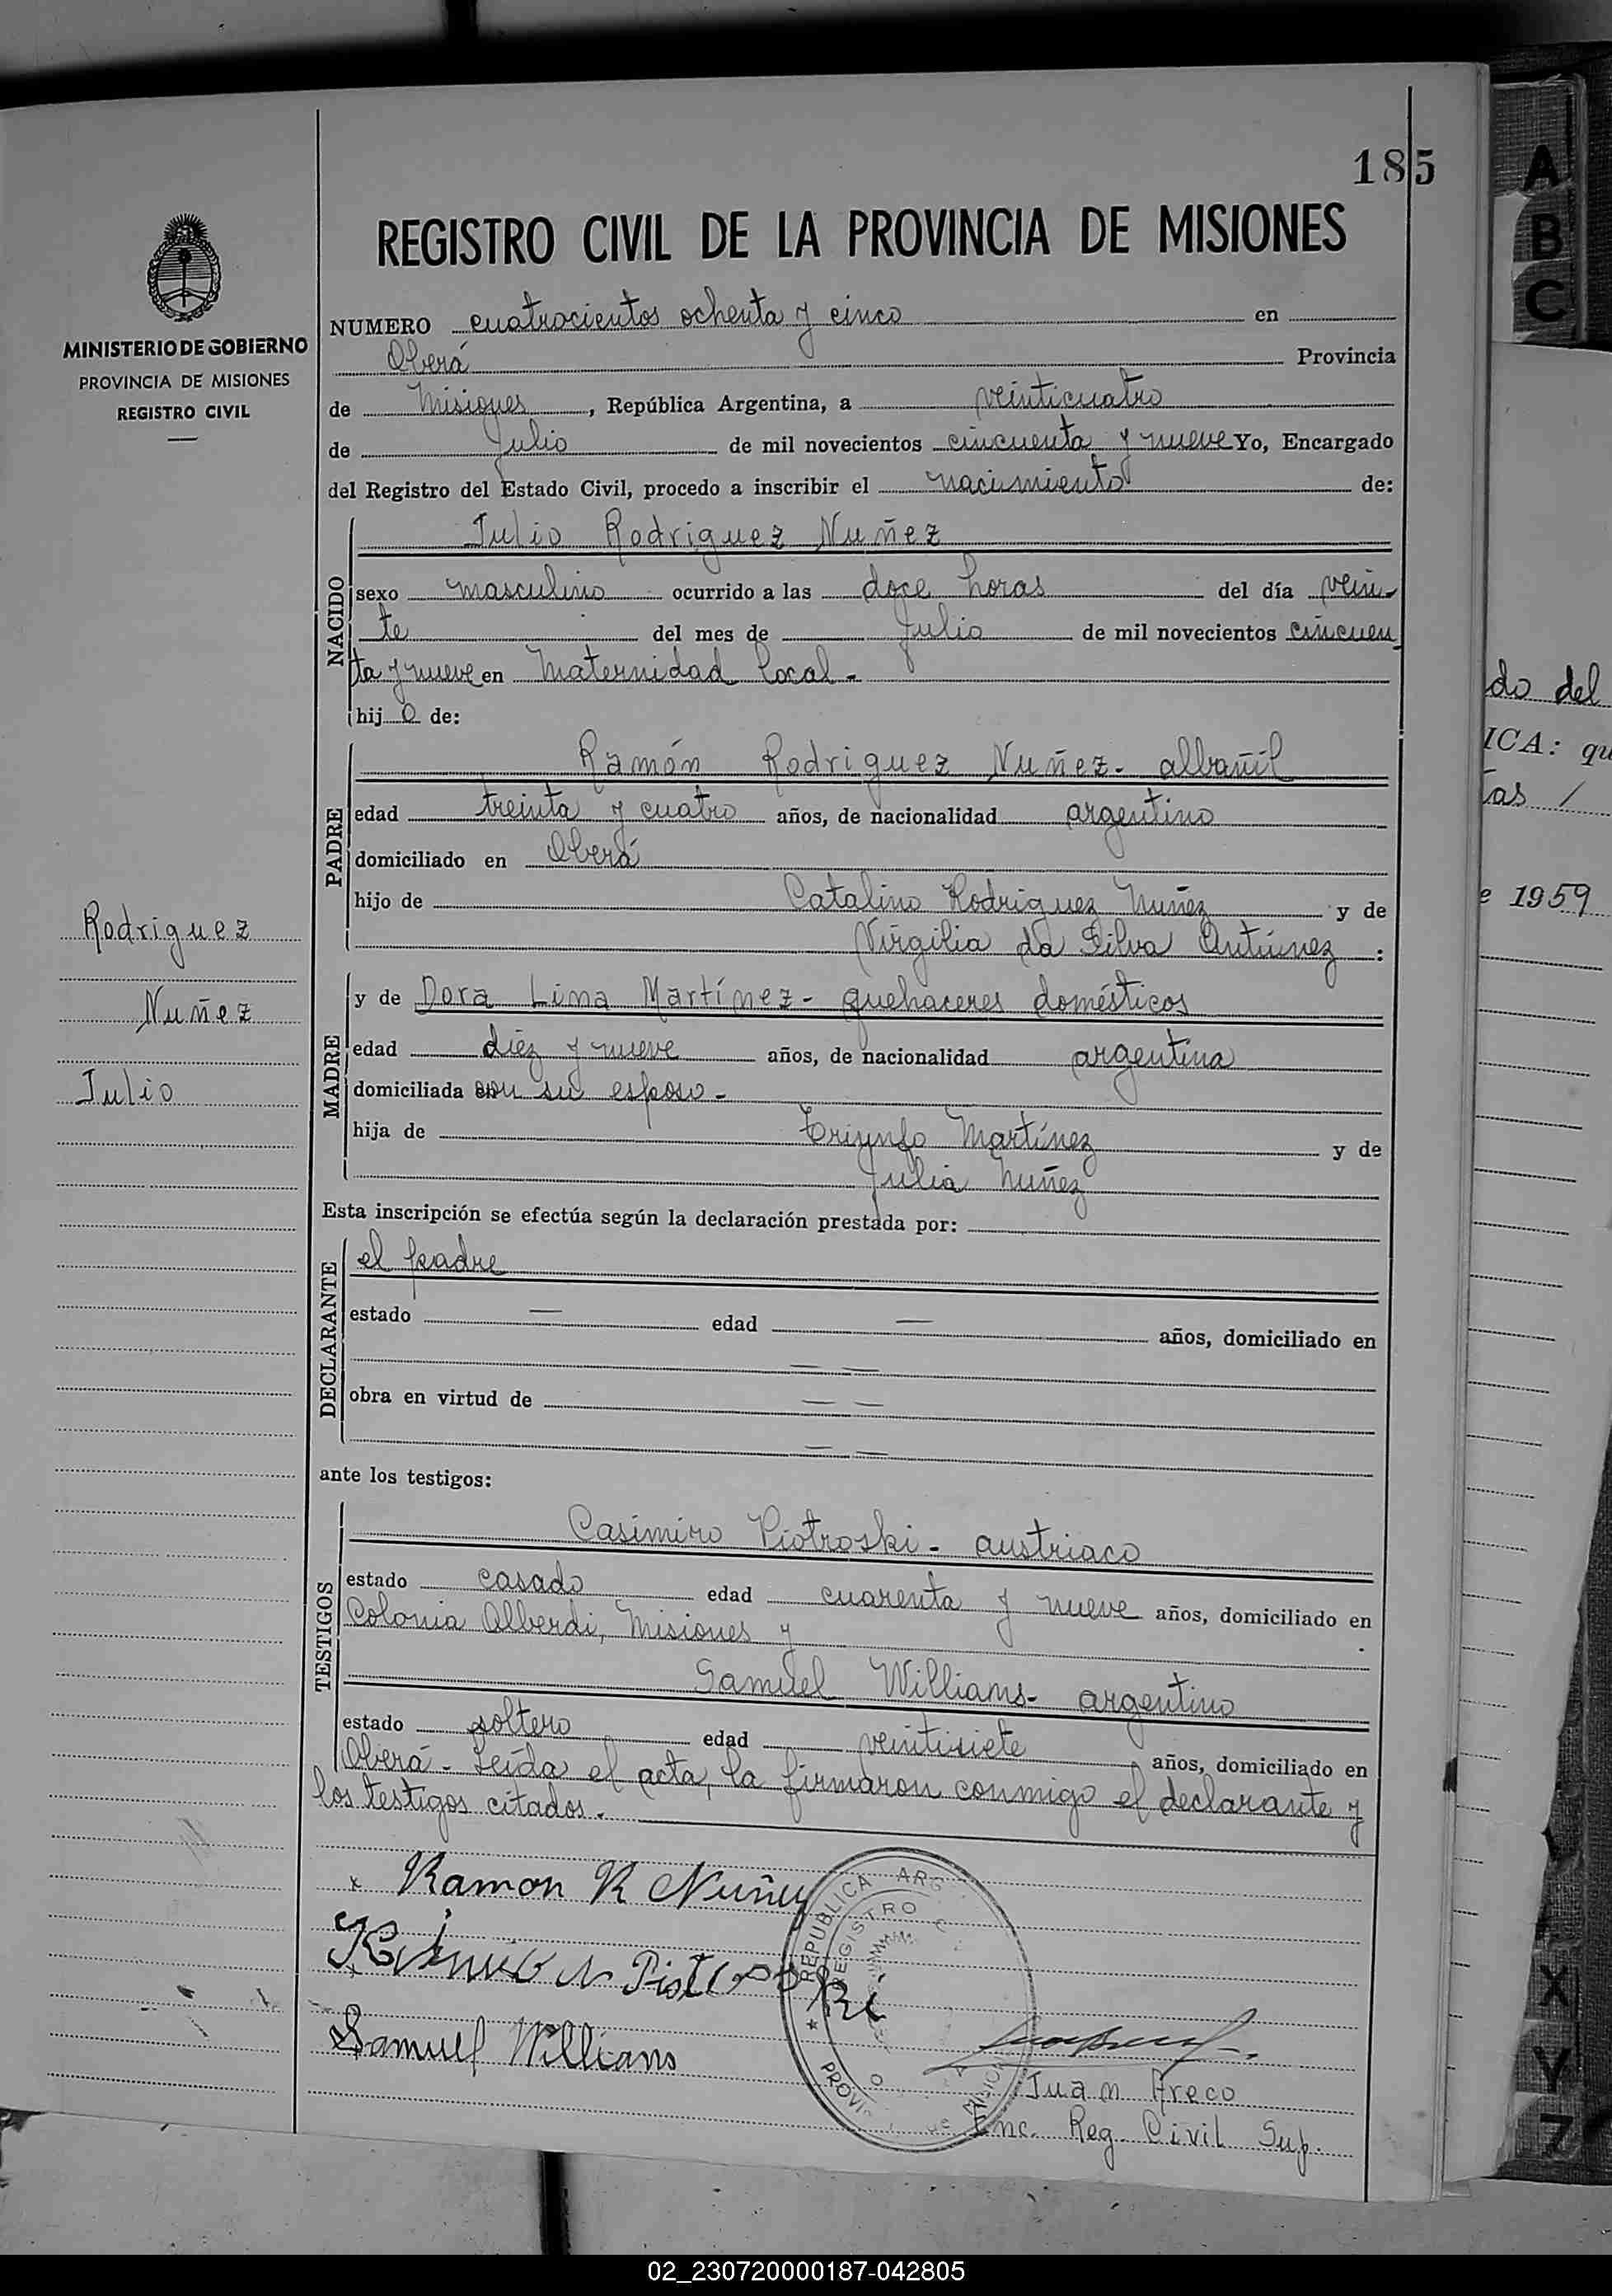 185
REGISTRO CIVIL DE LA PROVINCIA DE MISIONES
MINISTERIO DE GOBIERNO
PROVINCIA DE MISIONES
REGISTRO CIVIL
NUMERO cuatrocientos ochenta y cinco en
Oberá Provincia
de Misiones, República Argentina, a veinticuatro
de Julio de mil novecientos cincuenta y nueve Yo, Encargado
del Registro del Estado Civil, procedo a inscribir el nacimiento de:
NACIDO
Julio Rodriguez Nuñez
sexo masculino ocurrido a las doce horas del día vein-
te del mes de Julio de mil novecientos cincuen
ta y nueve en Maternidad local.-
hijo de:
PADRE
Ramón Rodriguez Nuñez- albañil
edad treinta y cuatro años, de nacionalidad argentino
domiciliado en Oberá
hijo de Catalino Rodriguez Nuñez y de
Virgilia da Silva Antúnez :
MADRE
y de Dora Lina Martínez- quehaceres domésticos
edad diez y nueve años, de nacionalidad argentina
domiciliada con su esposo-
hija de Triunfo Martínez y de
Julia Nuñez
Esta inscripción se efectúa según la declaración prestada por:
DECLARANTE
el padre
estado — edad — años, domiciliado en
— —
obra en virtud de — —
— —
ante los testigos:
TESTIGOS
Casimiro Piotroski- austriaco
estado casado edad cuarenta y nueve años, domiciliado en
Colonia Alberdi, Misiones y
Samuel Williams- argentino
estado soltero edad veintisiete años, domiciliado en
Oberá- Leída el acta, la firmaron conmigo el declarante y
los testigos citados.
Rodriguez
Nuñez
Julio
x Ramon R Nuñez
Piotroski
Samuel Willians
REPUBLICA ARG
REGISTRO C
PROVI
Juan Areco
Enc. Reg. Civil Sup.
do del
ICA: qu
tas /
e 1959
A
B
C
X
Y
Z
02_230720000187-042805